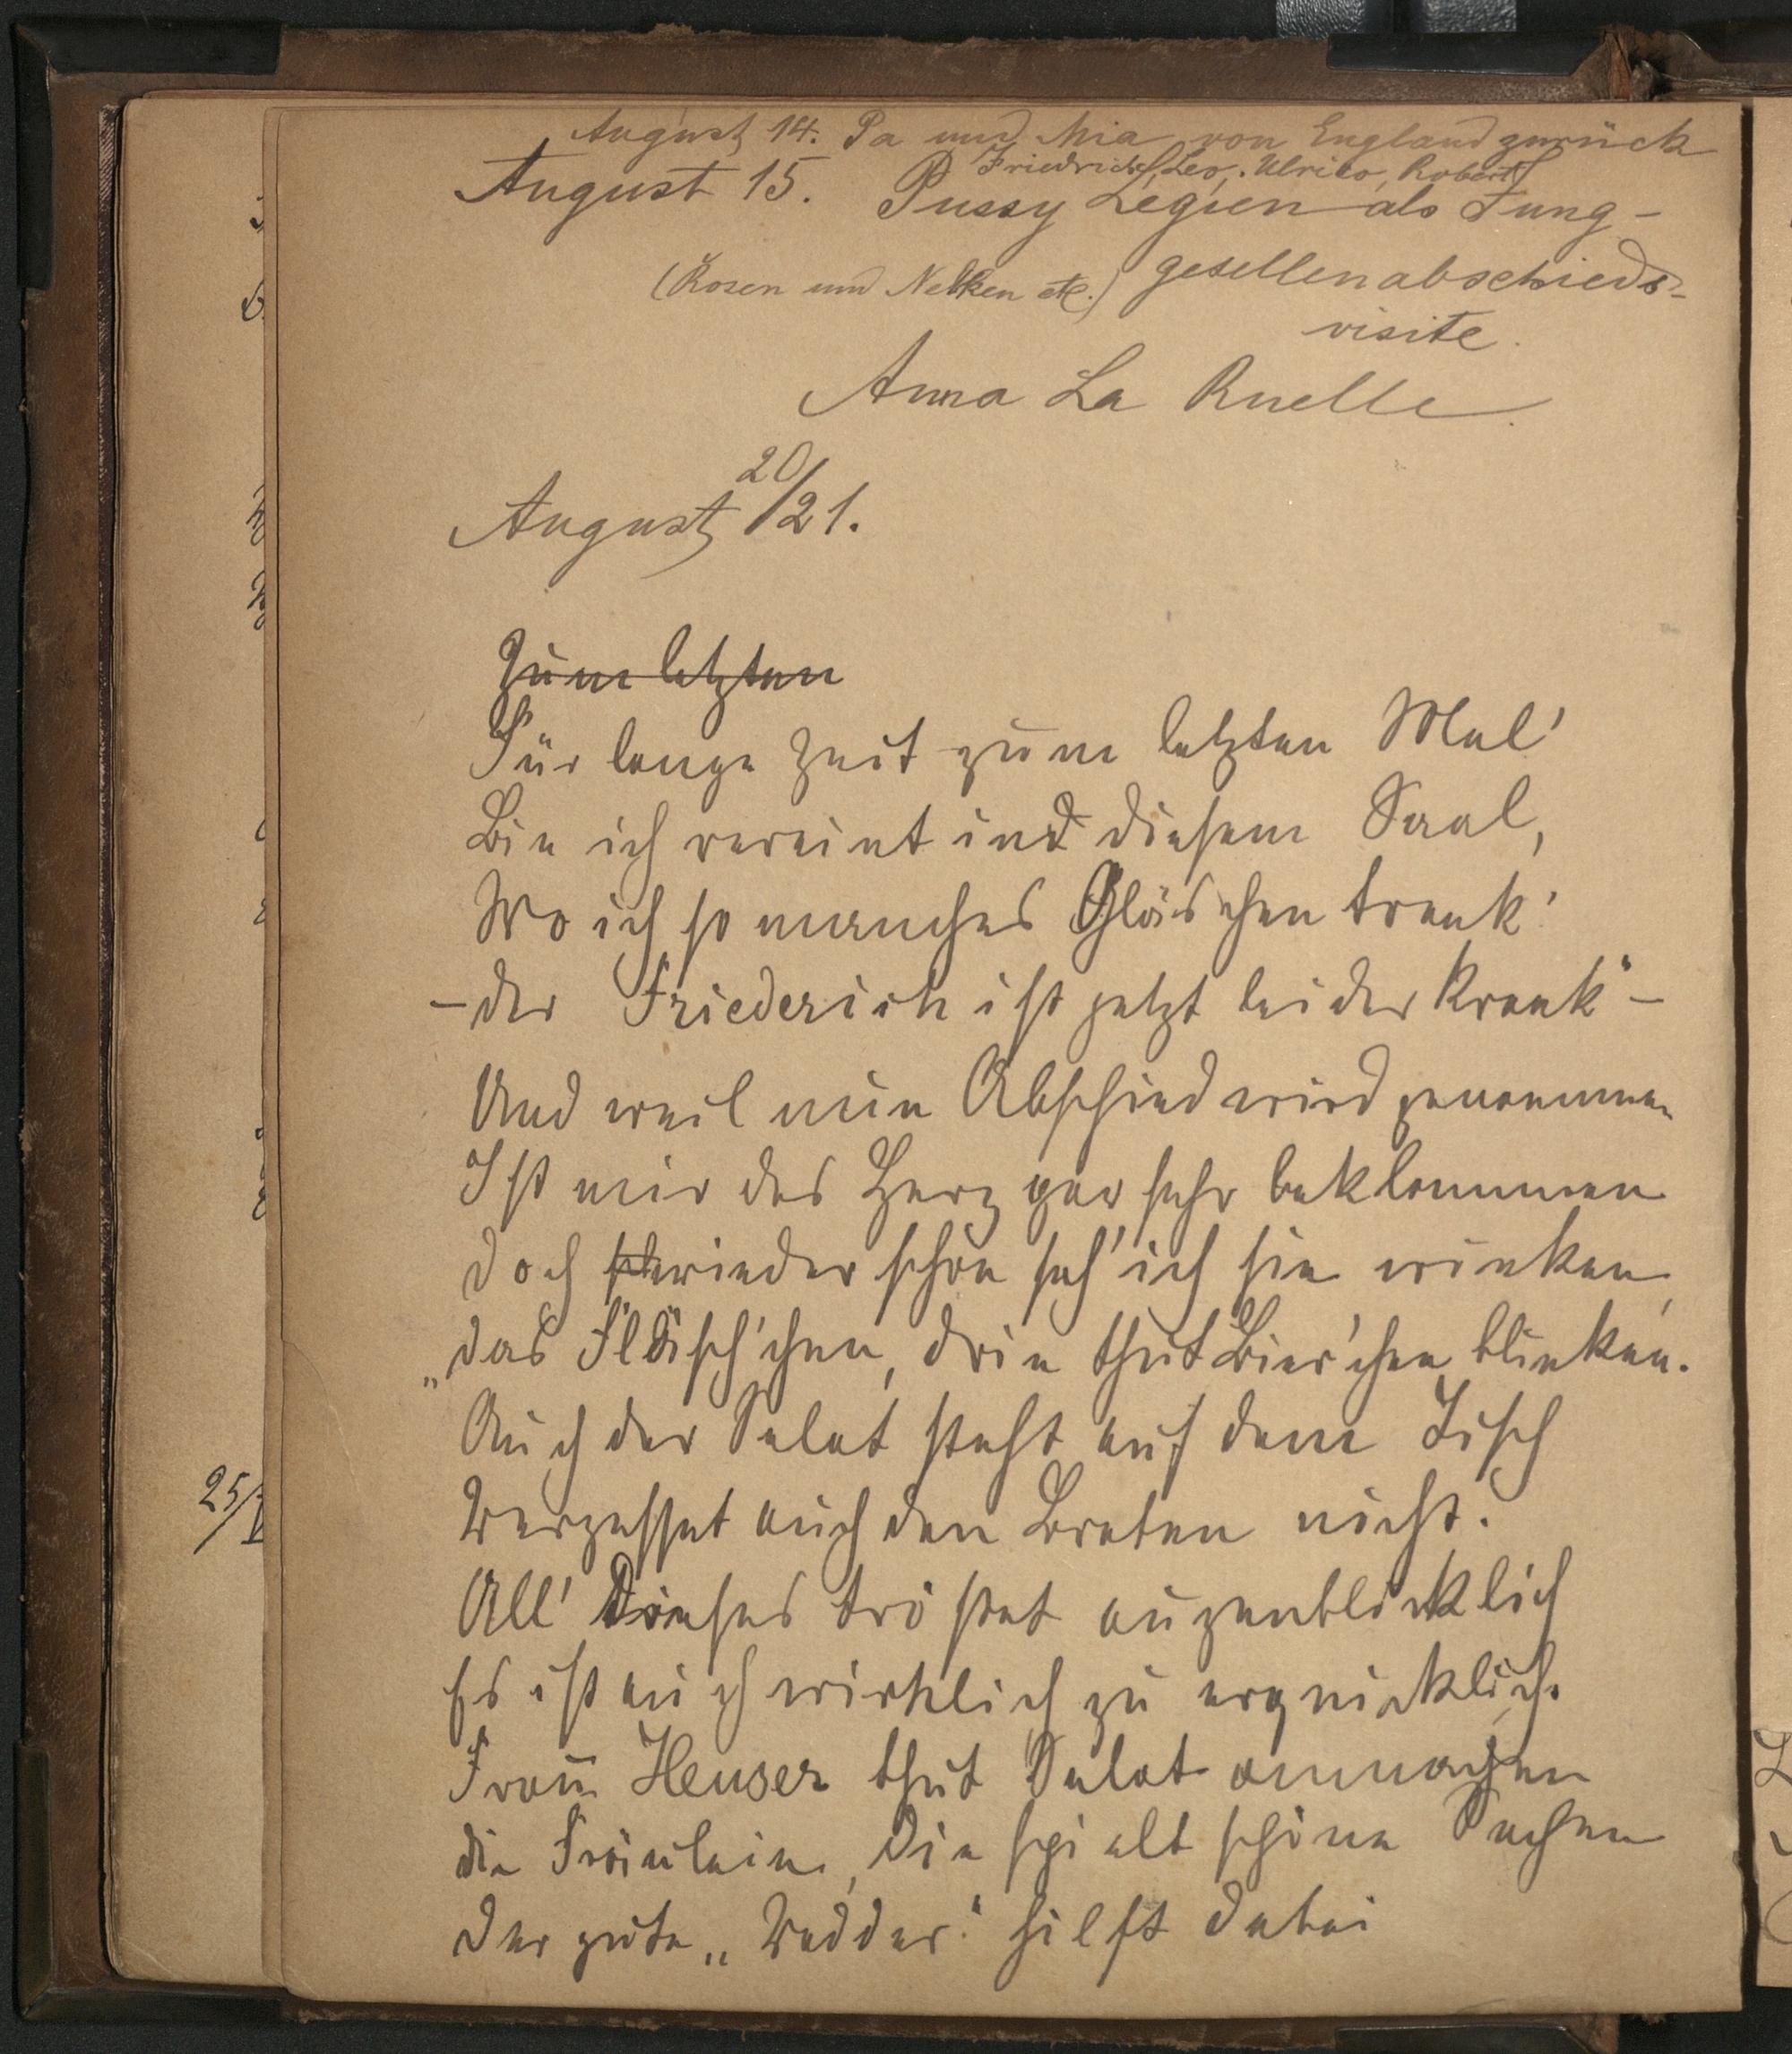 August 14. Pa und Mia von England zurück
Friedrich, Leo, Ulrico, Robert
August 15. Pussy Legien als Jung-
(Rosen und Nelken etc.) gesellenabschieds-
visite.
Anna La Ruelle.
August 20/21.
Zum letzten
Für lange Zeit zum letzten Mal'
Bin ich vereint in diesem Saal,
Wo ich so manches Gläschen trank'
– der Friederich ist jetzt leider krank" –
Und weil nun Abschied wird genommen
Ist mir das Herz gar sehr beklommen
Doch wieder schön seh' ich sie winken,
„das Fläsch'chen, drin thut Bier'chen blinken.
Auch der Salat steht auf dem Tisch
Vergesset auch den Braten nicht.
All' Dieses tröstet augenblicklich
Es ist auch wirklich zu erquicklich.
Frau Heuser thut Salat anmachen
die Fräulein, die spielt schöne Sachen
Der gute „Vedder" hilft dabei
25/V